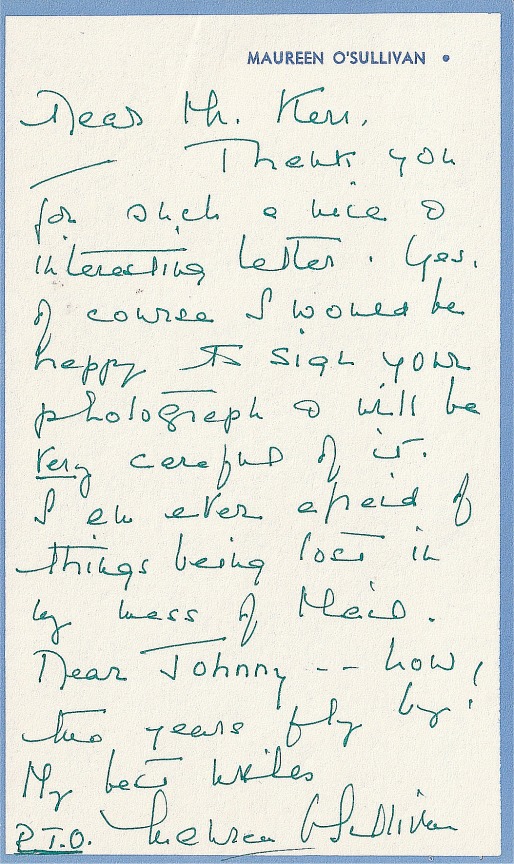 MAUREEN O'SULLIVAN •
Dear Mr. Kerr,
Thank you
for such a nice &
interesting letter. Yes,
of course I would be
happy to sign your
photograph & will be
very careful of it.
I am ever afraid of
things being lost in
my mess of Mail.
Dear Johnny -- how,
the years fly by!
My best wishes
P.T.O. Maureen O'Sullivan